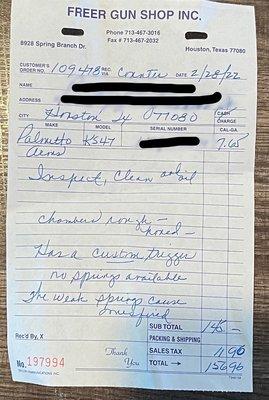 FREER GUN SHOP INC.
Phone 713-467-3016
8928 Spring Branch Dr. Fax # 713-467-2032 Houston, Texas 77080
CUSTOMER'S ORDER NO. 109478 REC. VIA Counter DATE 2/28/22
NAME
ADDRESS
CITY Houston Tx 077080 CASH
CHARGE
MAKE MODEL SERIAL NUMBER CAL-GA
Palmetto KS47 7.62
Arms
Inspect, Clean and oil
Chambers rough -
honed -
Has a custom trigger
no springs available
The weak springs cause
Rec'd By, X
SUB TOTAL 145 -
PACKING & SHIPPING
No. 197994 Thank You SALES TAX 11.96
TOTAL → 156.96